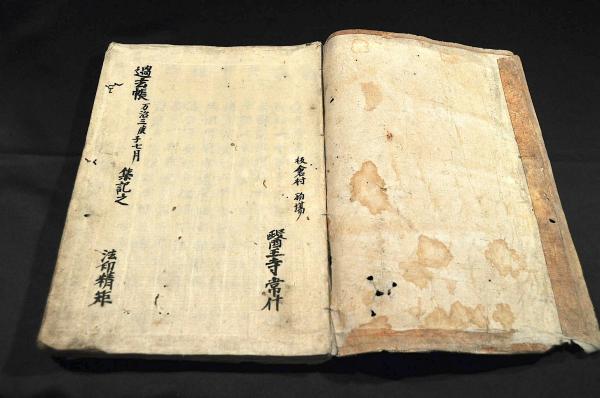 板倉村
醫王寺常什
過去帳 万治三庚子七月 集記之
法印精